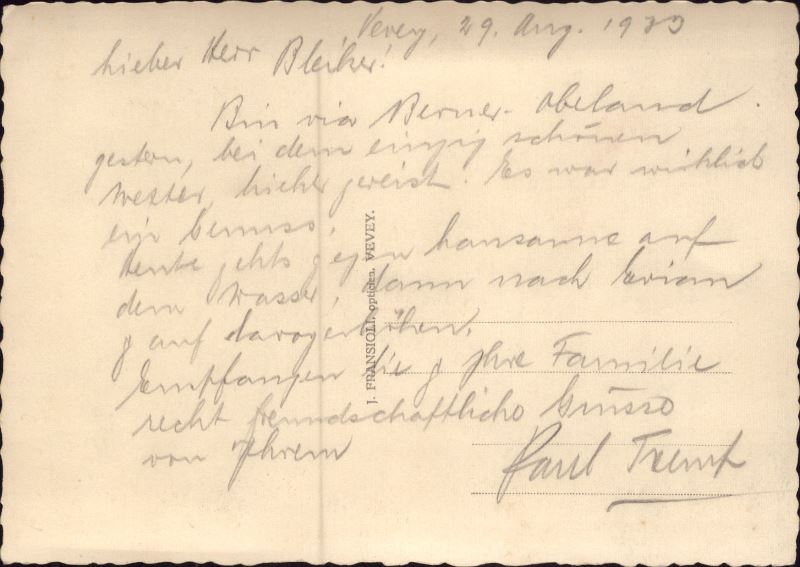 Vevey, 29. Aug. 1933
Lieber Herr Bleiker!
Bin via Berner-Obeland
gestern, bei dem einzig schönen
Wetter, hieher gereist. Es war wirklich
ein Genuss.
Heute gehts gegen Lausanne auf
dem Wasser, dann nach Evian
& auf
Empfangen Sie & Ihre Familie
recht freundschaftliche Grüsse
von Ihrem
Paul Tremp
J. FRANSIOLI, opticien, VEVEY.